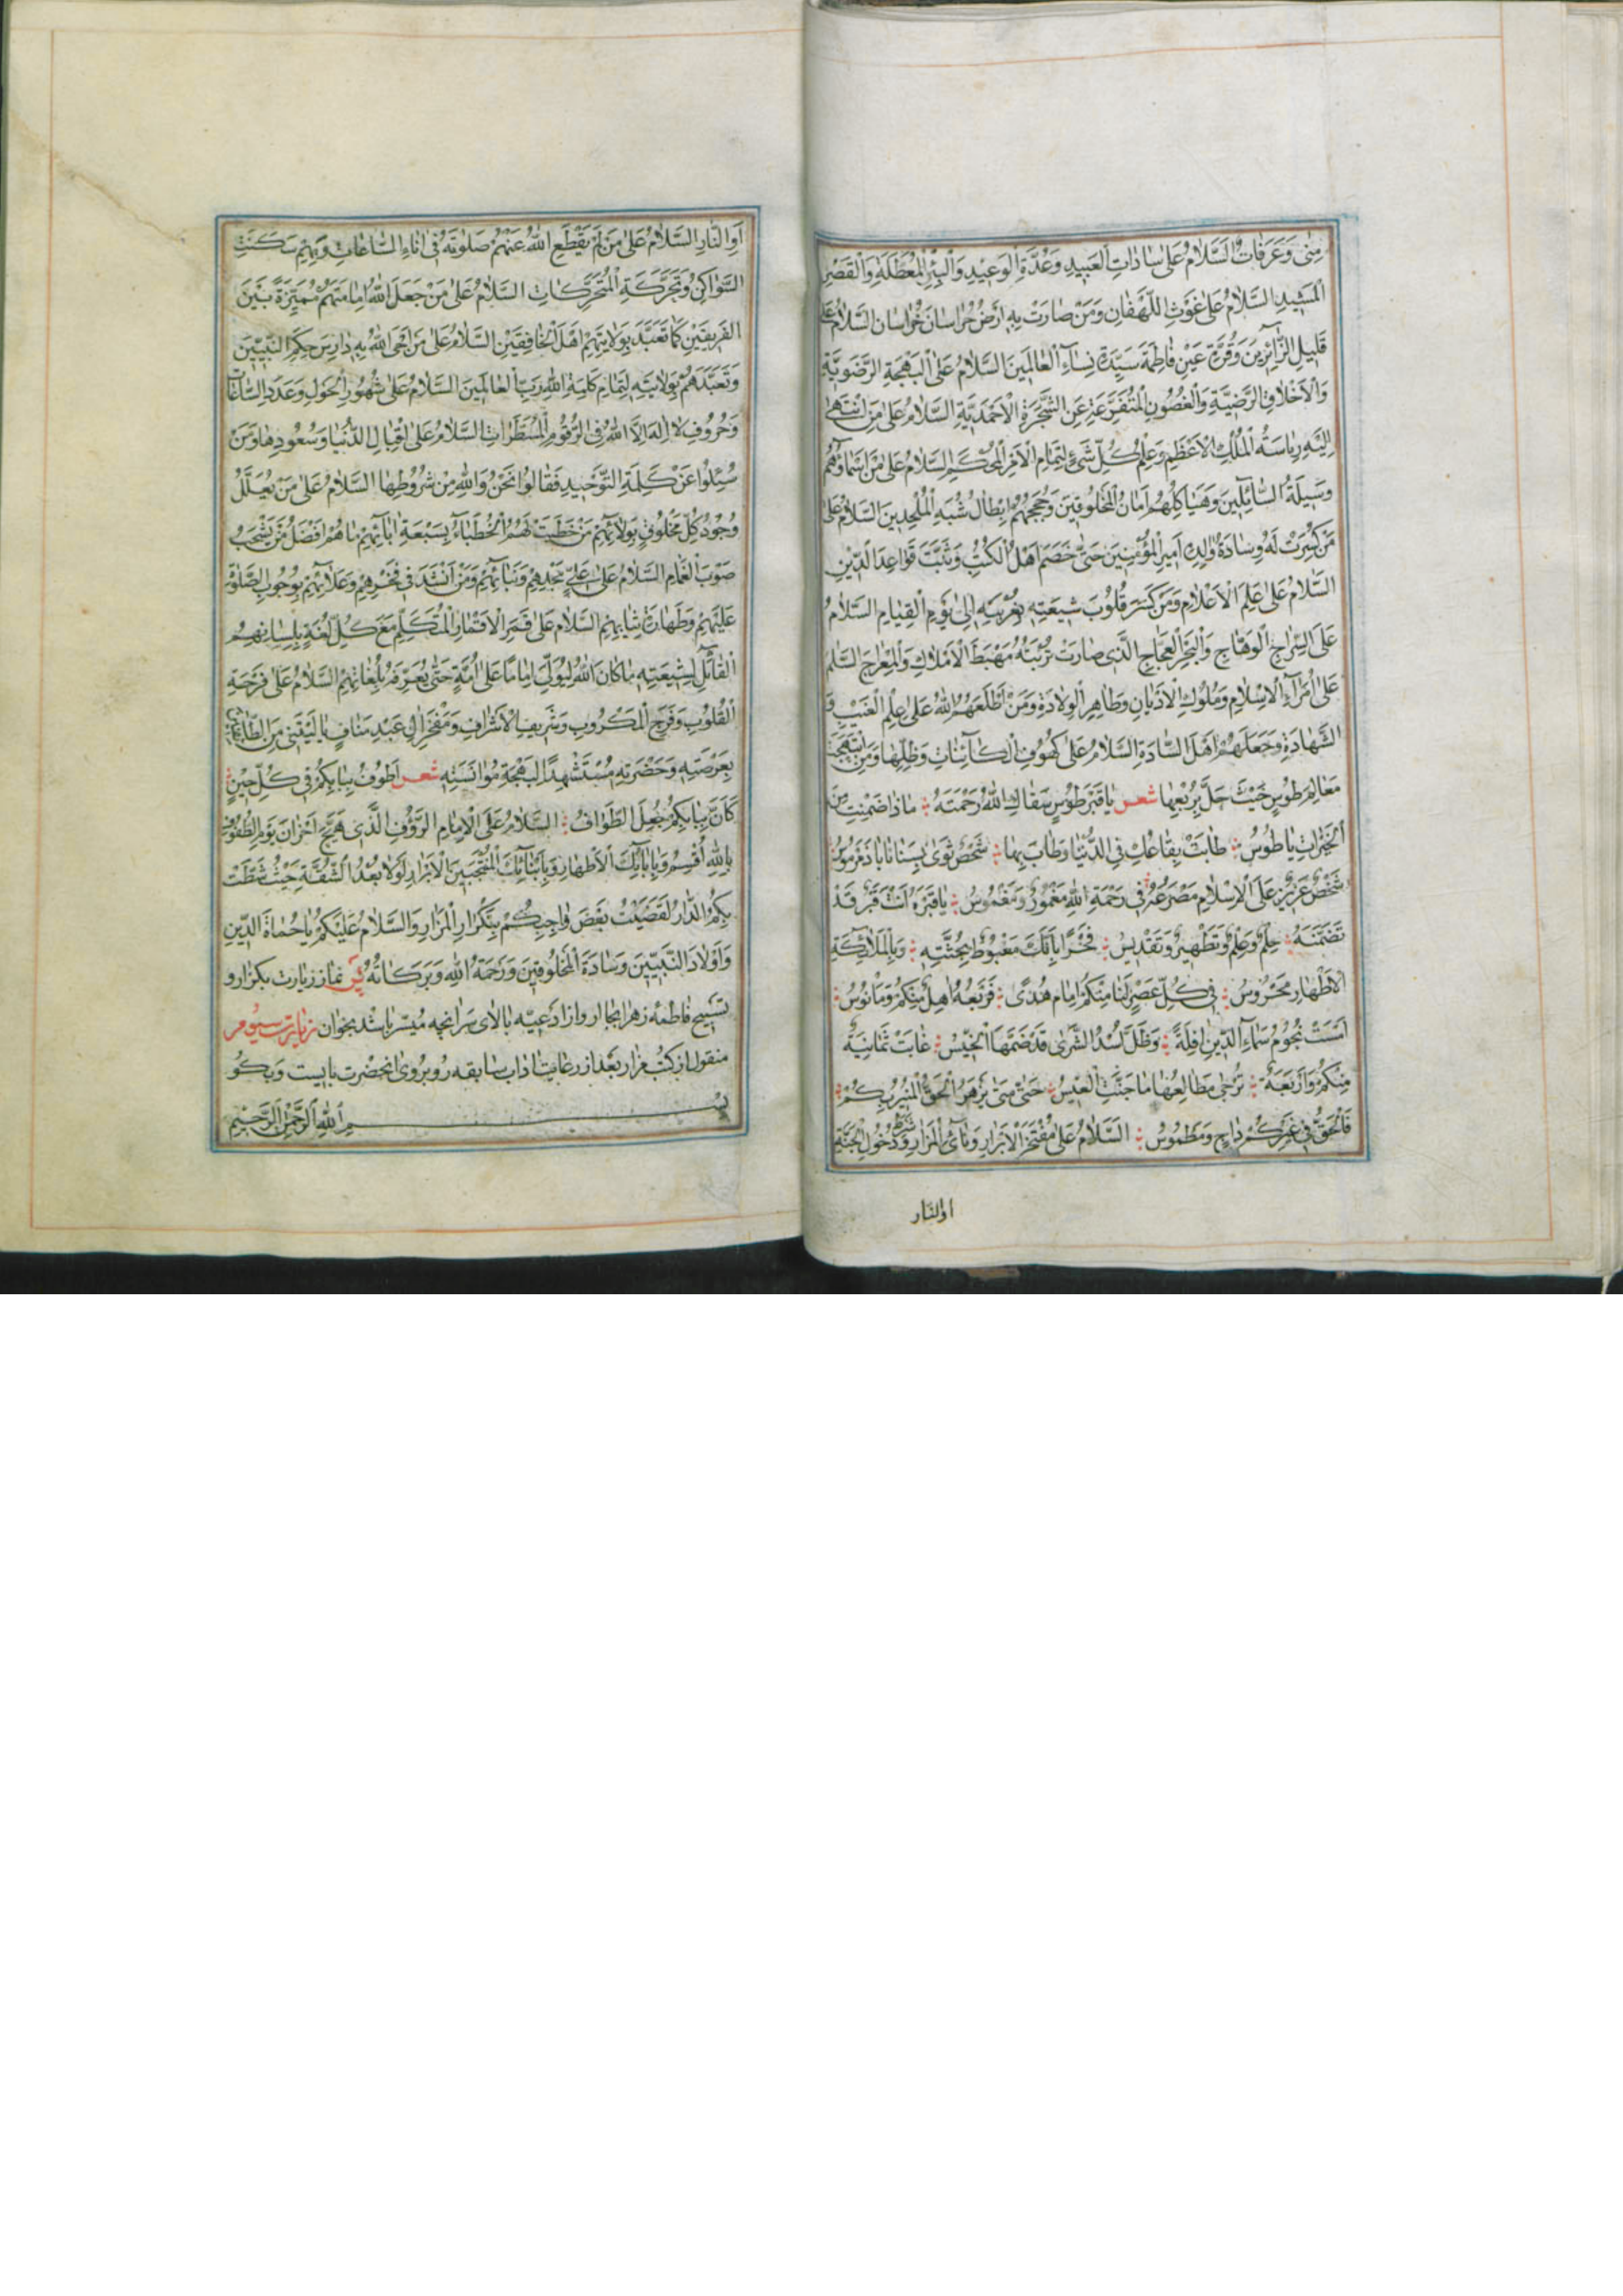 مِنٰى وَعَرَفَاتٍ السَّلَامُ عَلىٰ سَادَاتِ الْعَبِيدِ وَعُدَّةِ الْوَعِيدِ وَالْبِئْرِ الْمُعَطَّلَةِ وَالْقَصْرِ
الْمَشِيدِ السَّلَامُ عَلىٰ غَوْثِ اللَّهْفَانِ وَمَنْ صَارَتْ بِهِ اَرْضُ خُرَاسَانَ خُرَاسَانَ السَّلَامُ عَلىٰ
قَلِيلِ الزَّائِرِينَ وَقُرَّةِ عَيْنِ فَاطِمَةَ سَيِّدَةِ نِسَاءِ الْعَالَمِينَ السَّلَامُ عَلَى الْبَهْجَةِ الرَّضَوِيَّةِ
وَالْاَخْلَاقِ الرَّضِيَّةِ وَالْغُصُونِ الْمُتَفَرِّعَةِ عَنِ الشَّجَرَةِ الْاَحْمَدِيَّةِ السَّلَامُ عَلىٰ مَنِ انْتَهىٰ
اِلَيْهِ رِيَاسَةُ الْمُلْكِ الْاَعْظَمِ وَعِلْمُ كُلِّ شَيْءٍ لِتَمَامِ الْاَمْرِ الْمُحْكَمِ السَّلَامُ عَلىٰ مَنْ اَسْمَاؤُهُمْ
وَسِيلَةُ السَّائِلِينَ وَهَيَاكِلُهُمْ اَمَانُ الْمَخْلُوقِينَ وَحُجَجُهُمْ اِبْطَالُ شُبَهِ الْمُلْحِدِينَ السَّلَامُ عَلىٰ
مَنْ كُسِرَتْ لَهُ وِسَادَةُ وَالِدِهِ اَمِيرِ الْمُؤْمِنِينَ حَتّىٰ خَصَمَ اَهْلَ الْكُتُبِ وَثَبَّتَ قَوَاعِدَ الدِّينِ
السَّلَامُ عَلىٰ عَلَمِ الْاَعْلَامِ وَمَنْ كَسَرَ قُلُوبَ شِيعَتِهِ بِغُرْبَتِهِ اِلىٰ يَوْمِ الْقِيَامِ السَّلَامُ
عَلَى السِّرَاجِ الْوَهَّاجِ وَالْبَحْرِ الْعَجَّاجِ الَّذِي صَارَتْ تُرْبَتُهُ مَهْبِطَ الْاَمْلَاكِ وَالْمِعْرَاجِ السَّلَمُ
عَلىٰ اُمَرَاءِ الْاِسْلَامِ وَمُلُوكِ الْاَدْيَانِ وَطَاهِرِ الْوِلَادَةِ وَمَنْ اَطْلَعَهُمُ اللّٰهُ عَلىٰ عِلْمِ الْغَيْبِ وَ
الشَّهَادَةِ وَجَعَلَهُمْ اَهْلَ السَّادَةِ السَّلَامُ عَلىٰ كُهُوفِ الْكَائِنَاتِ وَظِلِّهَا وَمَنِ ابْتَهَجَتْ
مَعَالِمُ طُوسٍ حَيْثُ حَلَّ بِرَبْعِهَا شعر يَا قَبْرَ طُوسٍ سَقَاكِ اللّٰهُ رَحْمَتَهُ مَاذَا ضَمِنْتِ مِنَ
الْخَيْرَاتِ يَا طُوسُ طَابَتْ بِقَاعُكِ فِي الدُّنْيَا وَطَابَ بِهَا شَخْصٌ ثَوىٰ بِسَنَابَادَ مَرْمُوسُ
شَخْصٌ عَزِيزٌ عَلَى الْاِسْلَامِ مَصْرَعُهُ فِي رَحْمَةِ اللّٰهِ مَغْمُورٌ وَمَغْمُوسُ يَا قَبْرَهُ اَنْتَ قَبْرٌ قَدْ
تَضَمَّنَهُ حِلْمٌ وَعِلْمٌ وَتَطْهِيرٌ وَتَقْدِيسُ فَخْرًا بِاَنَّكَ مَغْبُوطٌ بِجُثَّتِهِ وَبِالْمَلَائِكَةِ
الْاَطْهَارِ مَحْرُوسُ فِي كُلِّ عَصْرٍ لَنَا مِنْكُمْ اِمَامُ هُدًى فَرَبْعُهُ اَهِلٌ مِنْكُمْ وَمَانُوسُ
اَمْسَتْ نُجُومُ سَمَاءِ الدِّينِ اٰفِلَةً وَظَلَّ اُسْدُ الشَّرىٰ قَدْ ضَمَّهَا الْخِيسُ غَابَتْ ثَمَانِيَةٌ
مِنْكُمْ وَاَرْبَعَةٌ تُرْجىٰ مَطَالِعُهَا مَا حَنَّتِ الْعِيسُ حَتّىٰ مَتىٰ يَزْهَرُ الْحَقُّ الْمُنِيرُ بِكُمْ
فَالْحَقُّ فِي غَيْرِكُمْ دَاجٍ وَمَطْمُوسُ السَّلَامُ عَلىٰ مُفْتَخَرِ الْاَبْرَارِ وَنَائِي الْمَزَارِ وَشَرْطِ دُخُولِ الْجَنَّةِ
اوالنار
اَوِ النَّارِ السَّلَامُ عَلىٰ مَنْ لَمْ يَقْطَعِ اللّٰهُ عَنْهُمْ صَلَوٰتَهُ فِي اٰنَاءِ السَّاعَاتِ وَبِهِمْ سَكَنَتِ
السَّوَاكِنُ وَتَحَرَّكَتِ الْمُتَحَرِّكَاتُ السَّلَامُ عَلىٰ مَنْ جَعَلَ اللّٰهُ اِمَامَتَهُمْ مُمَيِّزَةً بَيْنَ
الْفَرِيقَيْنِ كَمَا تَعَبَّدَ بِوِلَايَتِهِمْ اَهْلَ الْخَافِقَيْنِ السَّلَامُ عَلىٰ مَنْ اَحْيَى اللّٰهُ بِهِ دَارِسَ حِكَمِ النَّبِيِّينَ
وَتَعَبَّدَهُمْ بِوِلَايَتِهِ لِتَمَامِ كَلِمَةِ اللّٰهِ رَبِّ الْعَالَمِينَ السَّلَامُ عَلىٰ شُهُورِ الْحَوْلِ وَعَدَدِ السَّاعَاتِ
وَحُرُوفِ لَا اِلٰهَ اِلَّا اللّٰهُ فِي الرُّقُومِ الْمُسَطَّرَاتِ السَّلَامُ عَلىٰ اِقْبَالِ الدُّنْيَا وَسُعُودِهَا وَمَنْ
سُئِلُوا عَنْ كَلِمَةِ التَّوْحِيدِ فَقَالُوا نَحْنُ وَاللّٰهِ مِنْ شُرُوطِهَا السَّلَامُ عَلىٰ مَنْ يُعَلَّلُ
وُجُودُ كُلِّ مَخْلُوقٍ بِوِلَائِهِمْ مَنْ خَطَبَتْ لَهُمُ الْخُطَبَاءُ بِسَبْعَةِ اٰبَائِهِمْ مَا هُمْ اَفْضَلُ مَنْ يَشْرَبُ
صَوْبَ الْغَمَامِ السَّلَامُ عَلىٰ عَلِيِّ مَجْدِهِمْ وَبِنَائِهِمْ وَمَنْ اُنْشِدَ فِي فَخْرِهِمْ وَعَلَائِهِمْ بِوُجُوبِ الصَّلٰوةِ
عَلَيْهِمْ وَطَهَارَةِ ثِيَابِهِمْ السَّلَامُ عَلىٰ قَمَرِ الْاَقْمَارِ الْمُتَكَلِّمِ مَعَ كُلِّ لُغَةٍ بِلِسَانِهِمْ
الْقَائِلِ لِشِيعَتِهِ مَا كَانَ اللّٰهُ لِيُوَلِّيَ اِمَامًا عَلىٰ اُمَّةٍ حَتّىٰ يُعَرِّفَهُ بِلُغَاتِهِمْ السَّلَامُ عَلىٰ فَرْحَةِ
الْقُلُوبِ وَفَرَجِ الْمَكْرُوبِ وَشَرِيفِ الْاَشْرَافِ وَمَفْخَرِ اٰلِ عَبْدِ مَنَافٍ يَا لَيْتَنِي مِنَ الطَّائِفِينَ
بِعَرْصَتِهِ وَحَضْرَتِهِ مُسْتَشْهِدًا لِبَهْجَةِ مُؤَانَسَتِهِ شعر اَطُوفُ بِبَابِكُمْ فِي كُلِّ حِينٍ
كَاَنَّ بِبَابِكُمْ جُعِلَ الطَّوَافُ السَّلَامُ عَلَى الْاِمَامِ الرَّؤُفِ الَّذِي هَيَّجَ اَحْزَانَ يَوْمِ الطُّفُوفِ
بِاللّٰهِ اُقْسِمُ وَبِاٰبَائِكَ الْاَطْهَارِ وَبِاَبْنَائِكَ الْمُنْتَجَبِينَ الْاَبْرَارِ لَوْلَا بُعْدُ الشُّقَّةِ حَيْثُ شَطَّتْ
بِكُمُ الدَّارُ لَقَضَيْتُ بَعْضَ وَاجِبِكُمْ بِتَكْرَارِ الْمَزَارِ وَالسَّلَامُ عَلَيْكُمْ يَا حُمَاةَ الدِّينِ
وَاَوْلَادَ النَّبِيِّينَ وَسَادَةَ الْمَخْلُوقِينَ وَرَحْمَةُ اللّٰهِ وَبَرَكَاتُهُ پس نماز زیارت بکزار و
تسبیح فاطمه زهرا بجا ار و از ادعیه بالای سر انچه میسر باشد بخوان زیارت سیوم
منقول از کتب مزار بعد از رعایت اداب سابقه روبروی انحضرت بایست و بکو
بِسْمِ اللّٰهِ الرَّحْمٰنِ الرَّحِيمِ